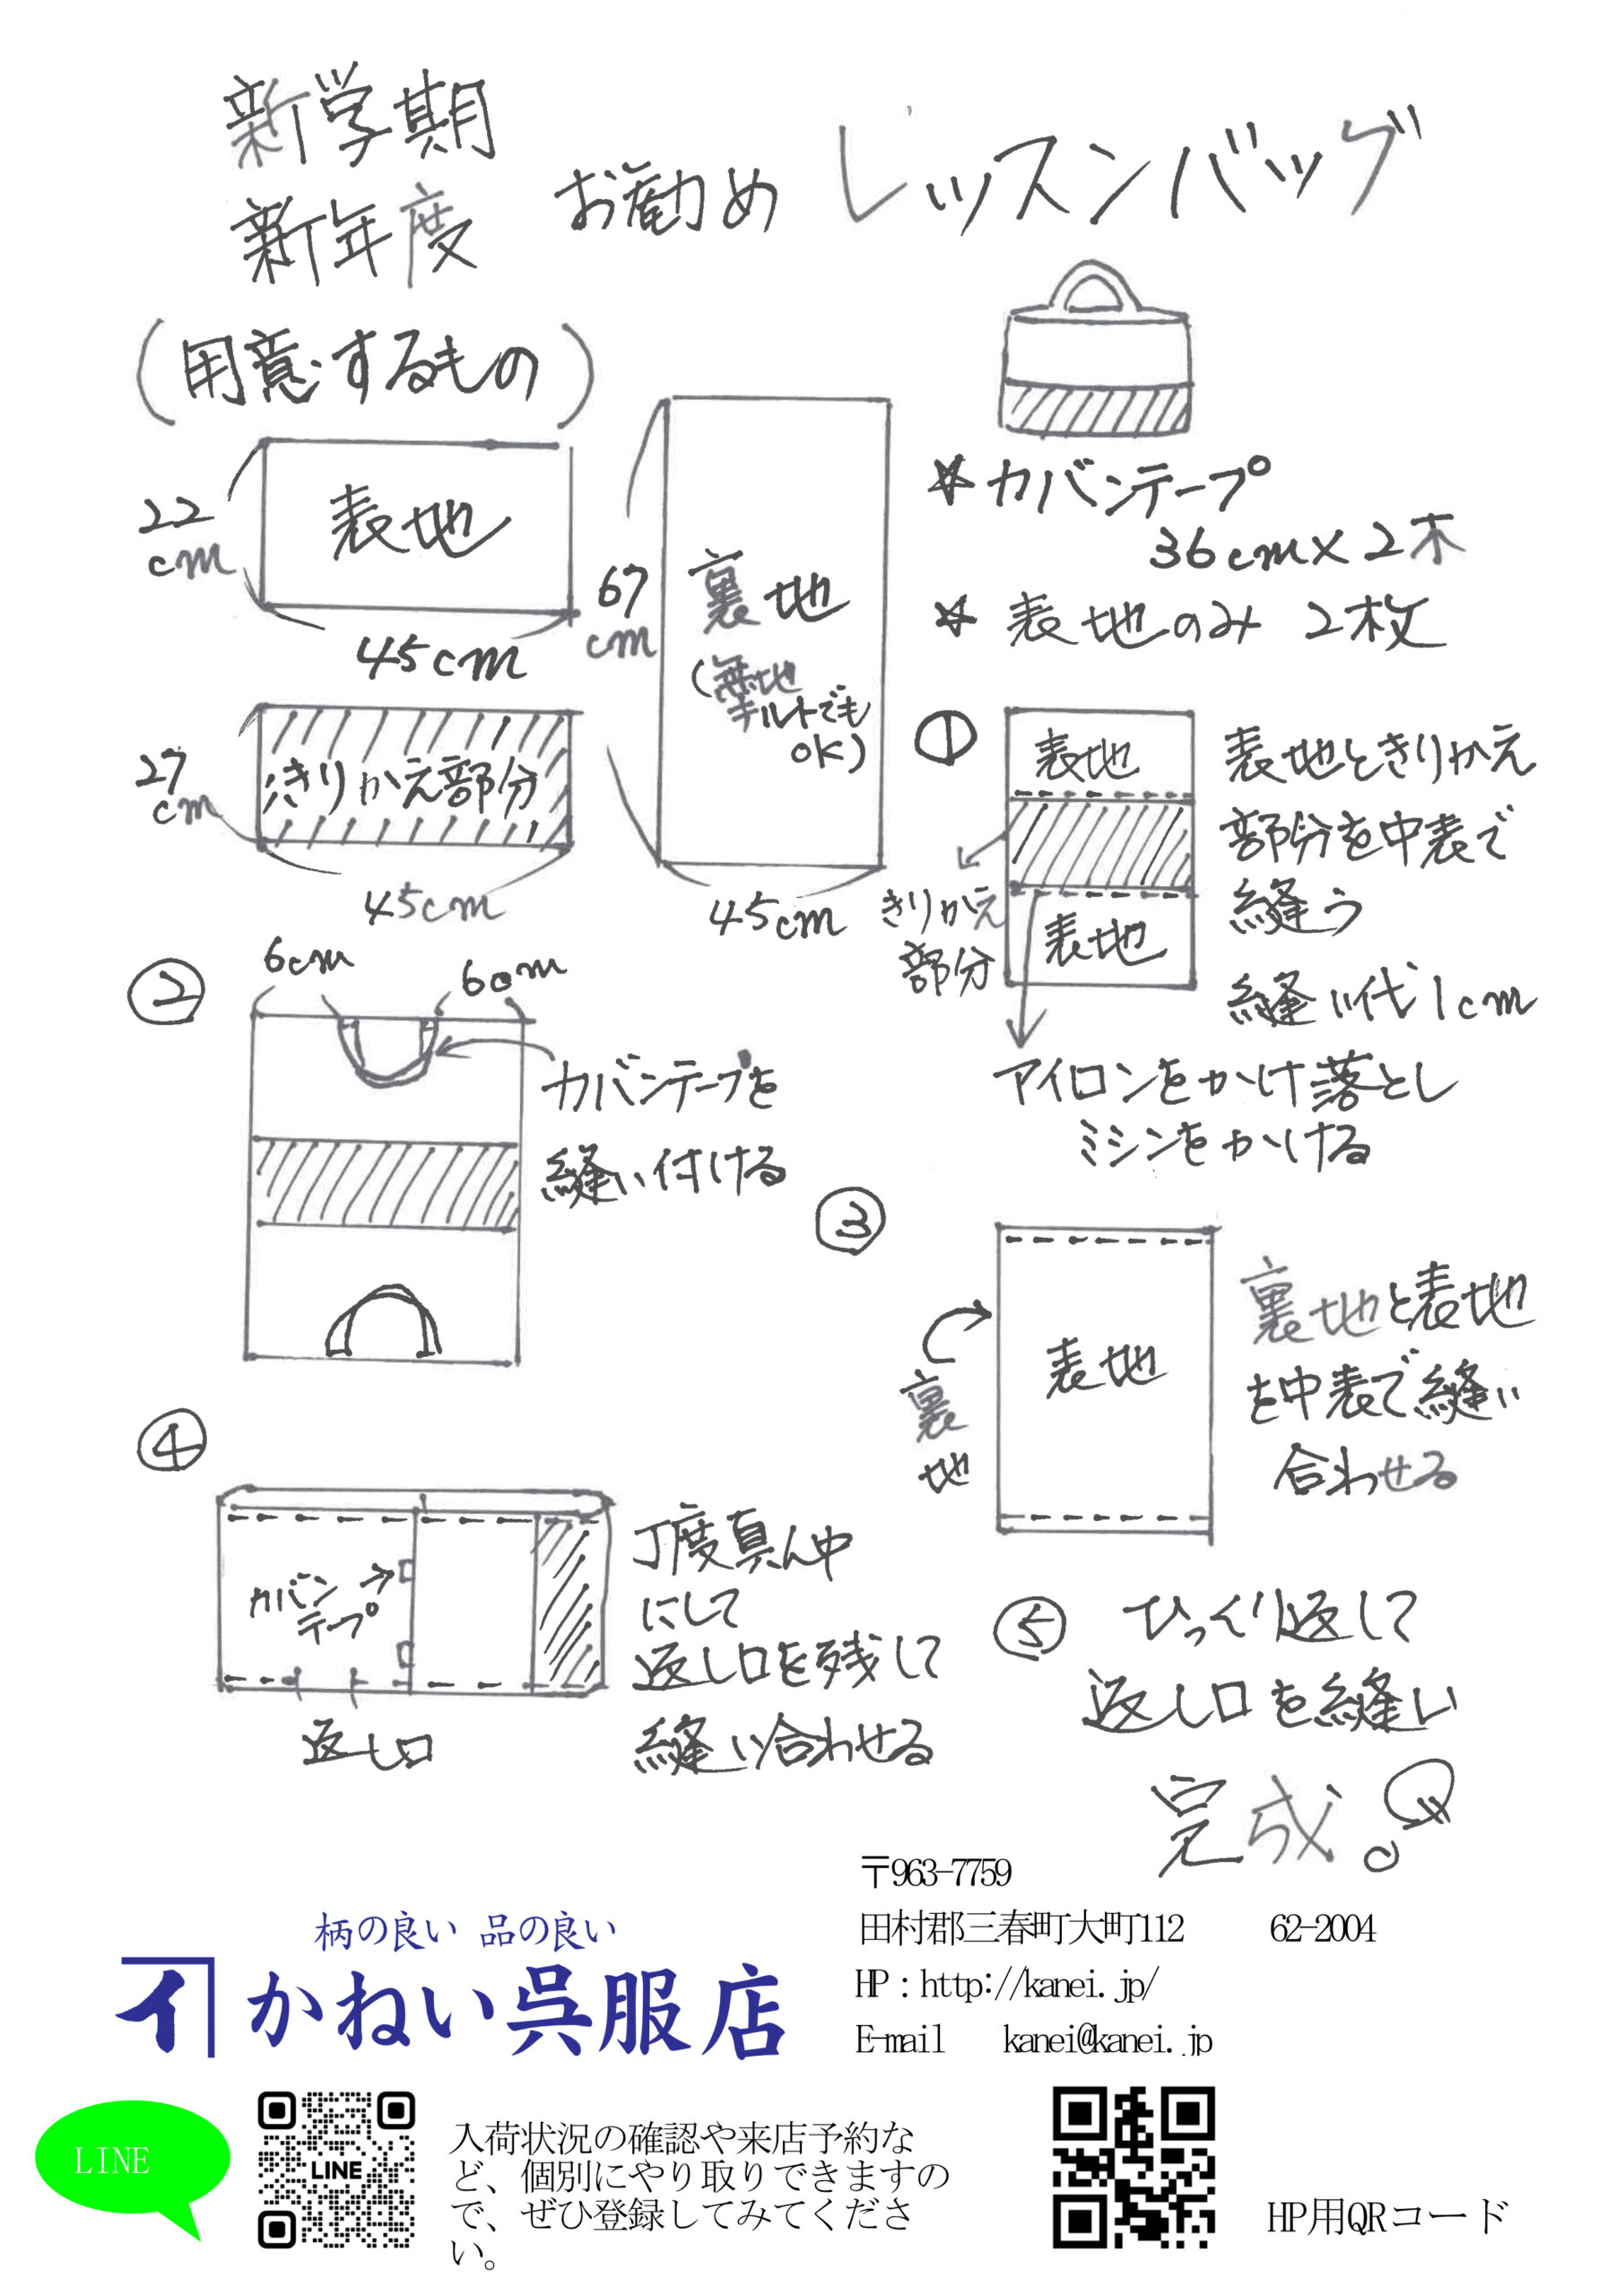 新学期
新年度
お勧め レッスンバッグ
(用意するもの)
22
cm
表地
45cm
27
cm
きりかえ部分
45cm
67
cm
裏地
(無地
キルトでも
OK)
45cm
☆カバンテープ
36cm×2本
☆ 表地のみ 2枚
①
表地
表地
きりかえ
部分
表地ときりかえ
部分を中表で
縫う
縫い代1cm
アイロンをかけ落とし
ミシンをかける
②
6cm
6cm
カバンテープを
縫い付ける
③
裏
地
表地
裏地と表地
を中表で縫い
合わせる
④
カバン
テープ
返し口
丁度真ん中
にして
返し口を残して
縫い合わせる
⑤ ひっくり返して
返し口を縫い
完成。
〒963-7759
田村郡三春町大町112 62-2004
HP:http://kanei.jp/
E-mail kanei@kanei.jp
柄の良い 品の良い
イ かねい呉服店
LINE
LINE
入荷状況の確認や来店予約な
ど、個別にやり取りできますの
で、ぜひ登録してみてくださ
い。
HP用QRコード